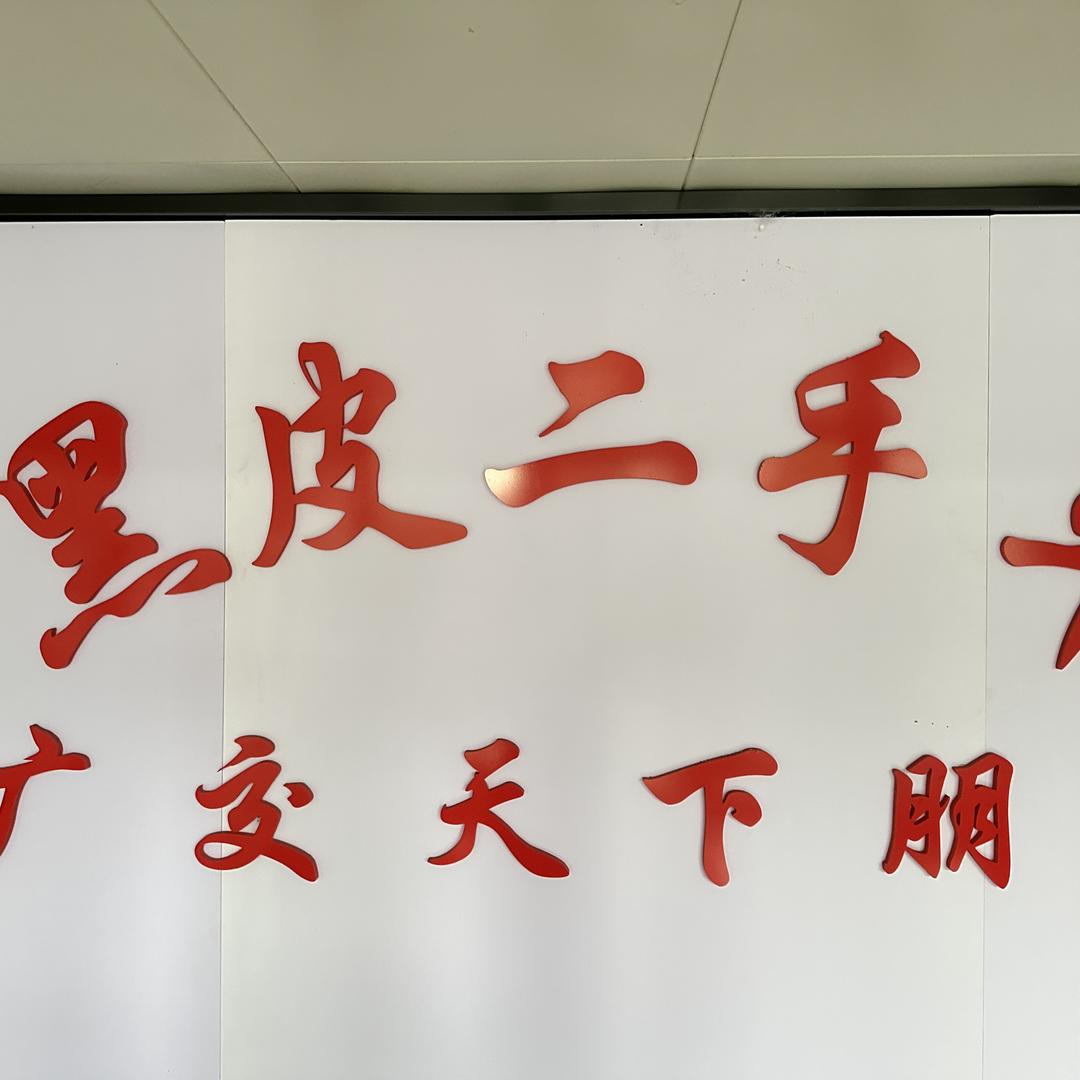 黑皮二手
广交天下朋